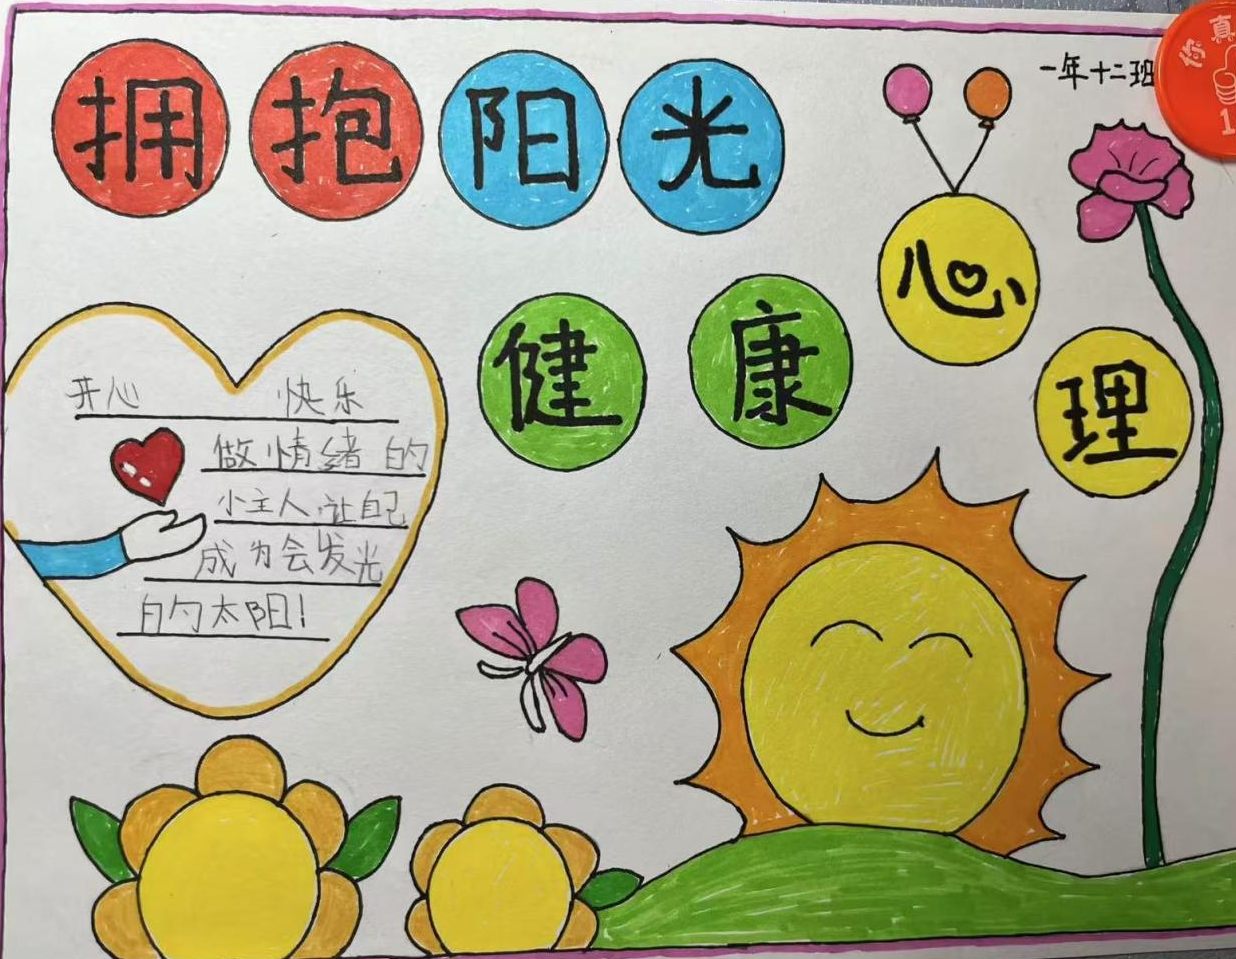 拥抱阳光
一年十二班
你真
1
心理
健康
开心 快乐
做情绪的
小主人,让自己
成为会发光
的太阳!